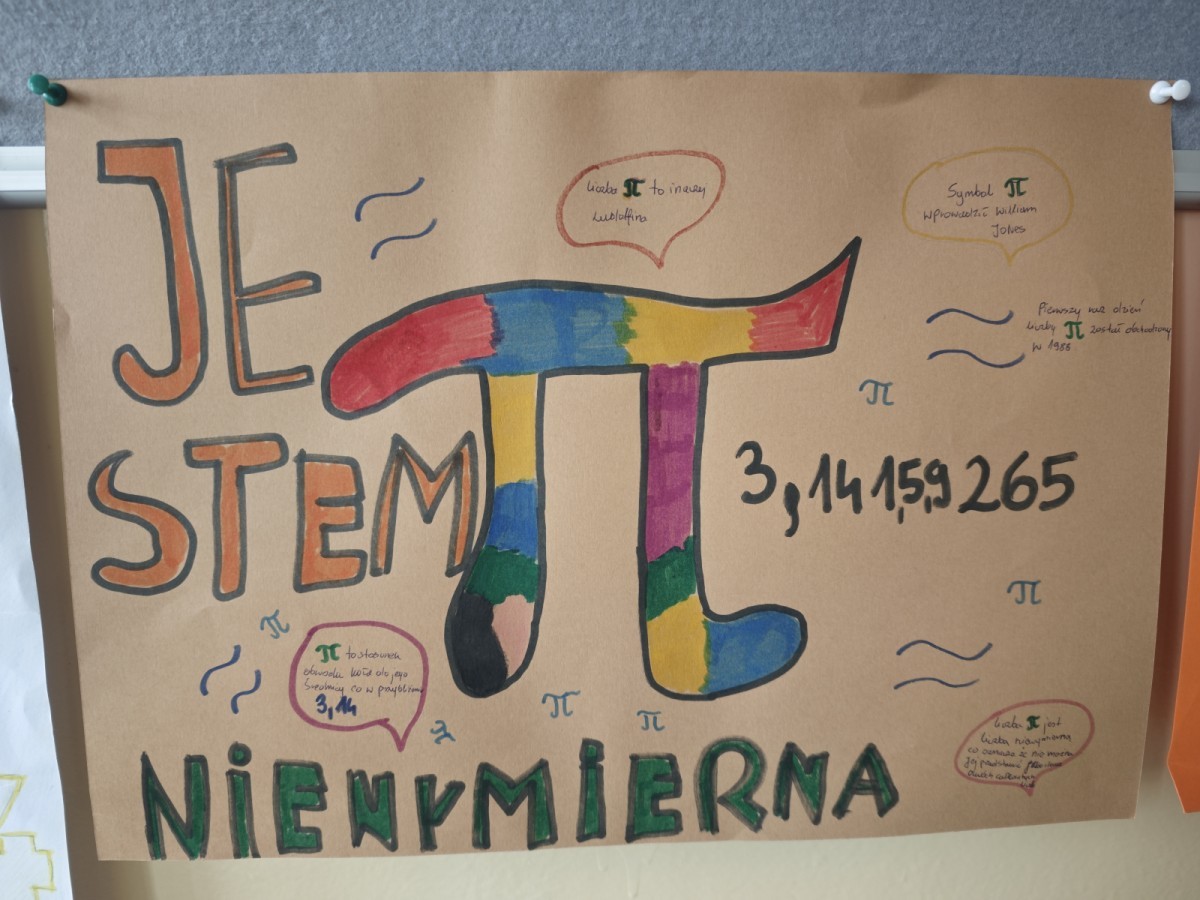 JE
STEM
π
3,14159265
NIEWYMIERNA
Liczba π to inaczej
Ludolfina
Symbol π
wprowadził William
Jones
Pierwszy raz dzień
liczby π został obchodzony
w 1988
π
π
π
π to stosunek
obwodu koła do jego
średnicy co w przybliżeniu
3,14
π
π
Liczba π jest
liczbą niewymierną
co oznacza że nie można
jej przedstawić